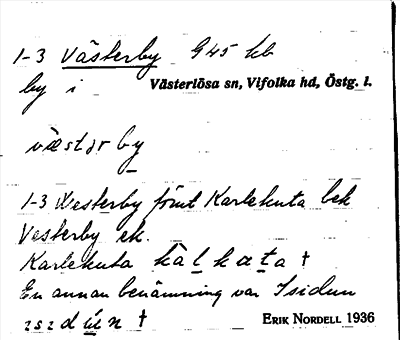 1-3 Västerby 945 hb
by i Västerlösa sn, Vifolka hd, Östg. l.
væstərby
1-3 Westerby förut Karlekuta bek
Vesterby ek.
Karlekuta kàlkata †
En annan benämning var Isidun
ERIK NORDELL 1936